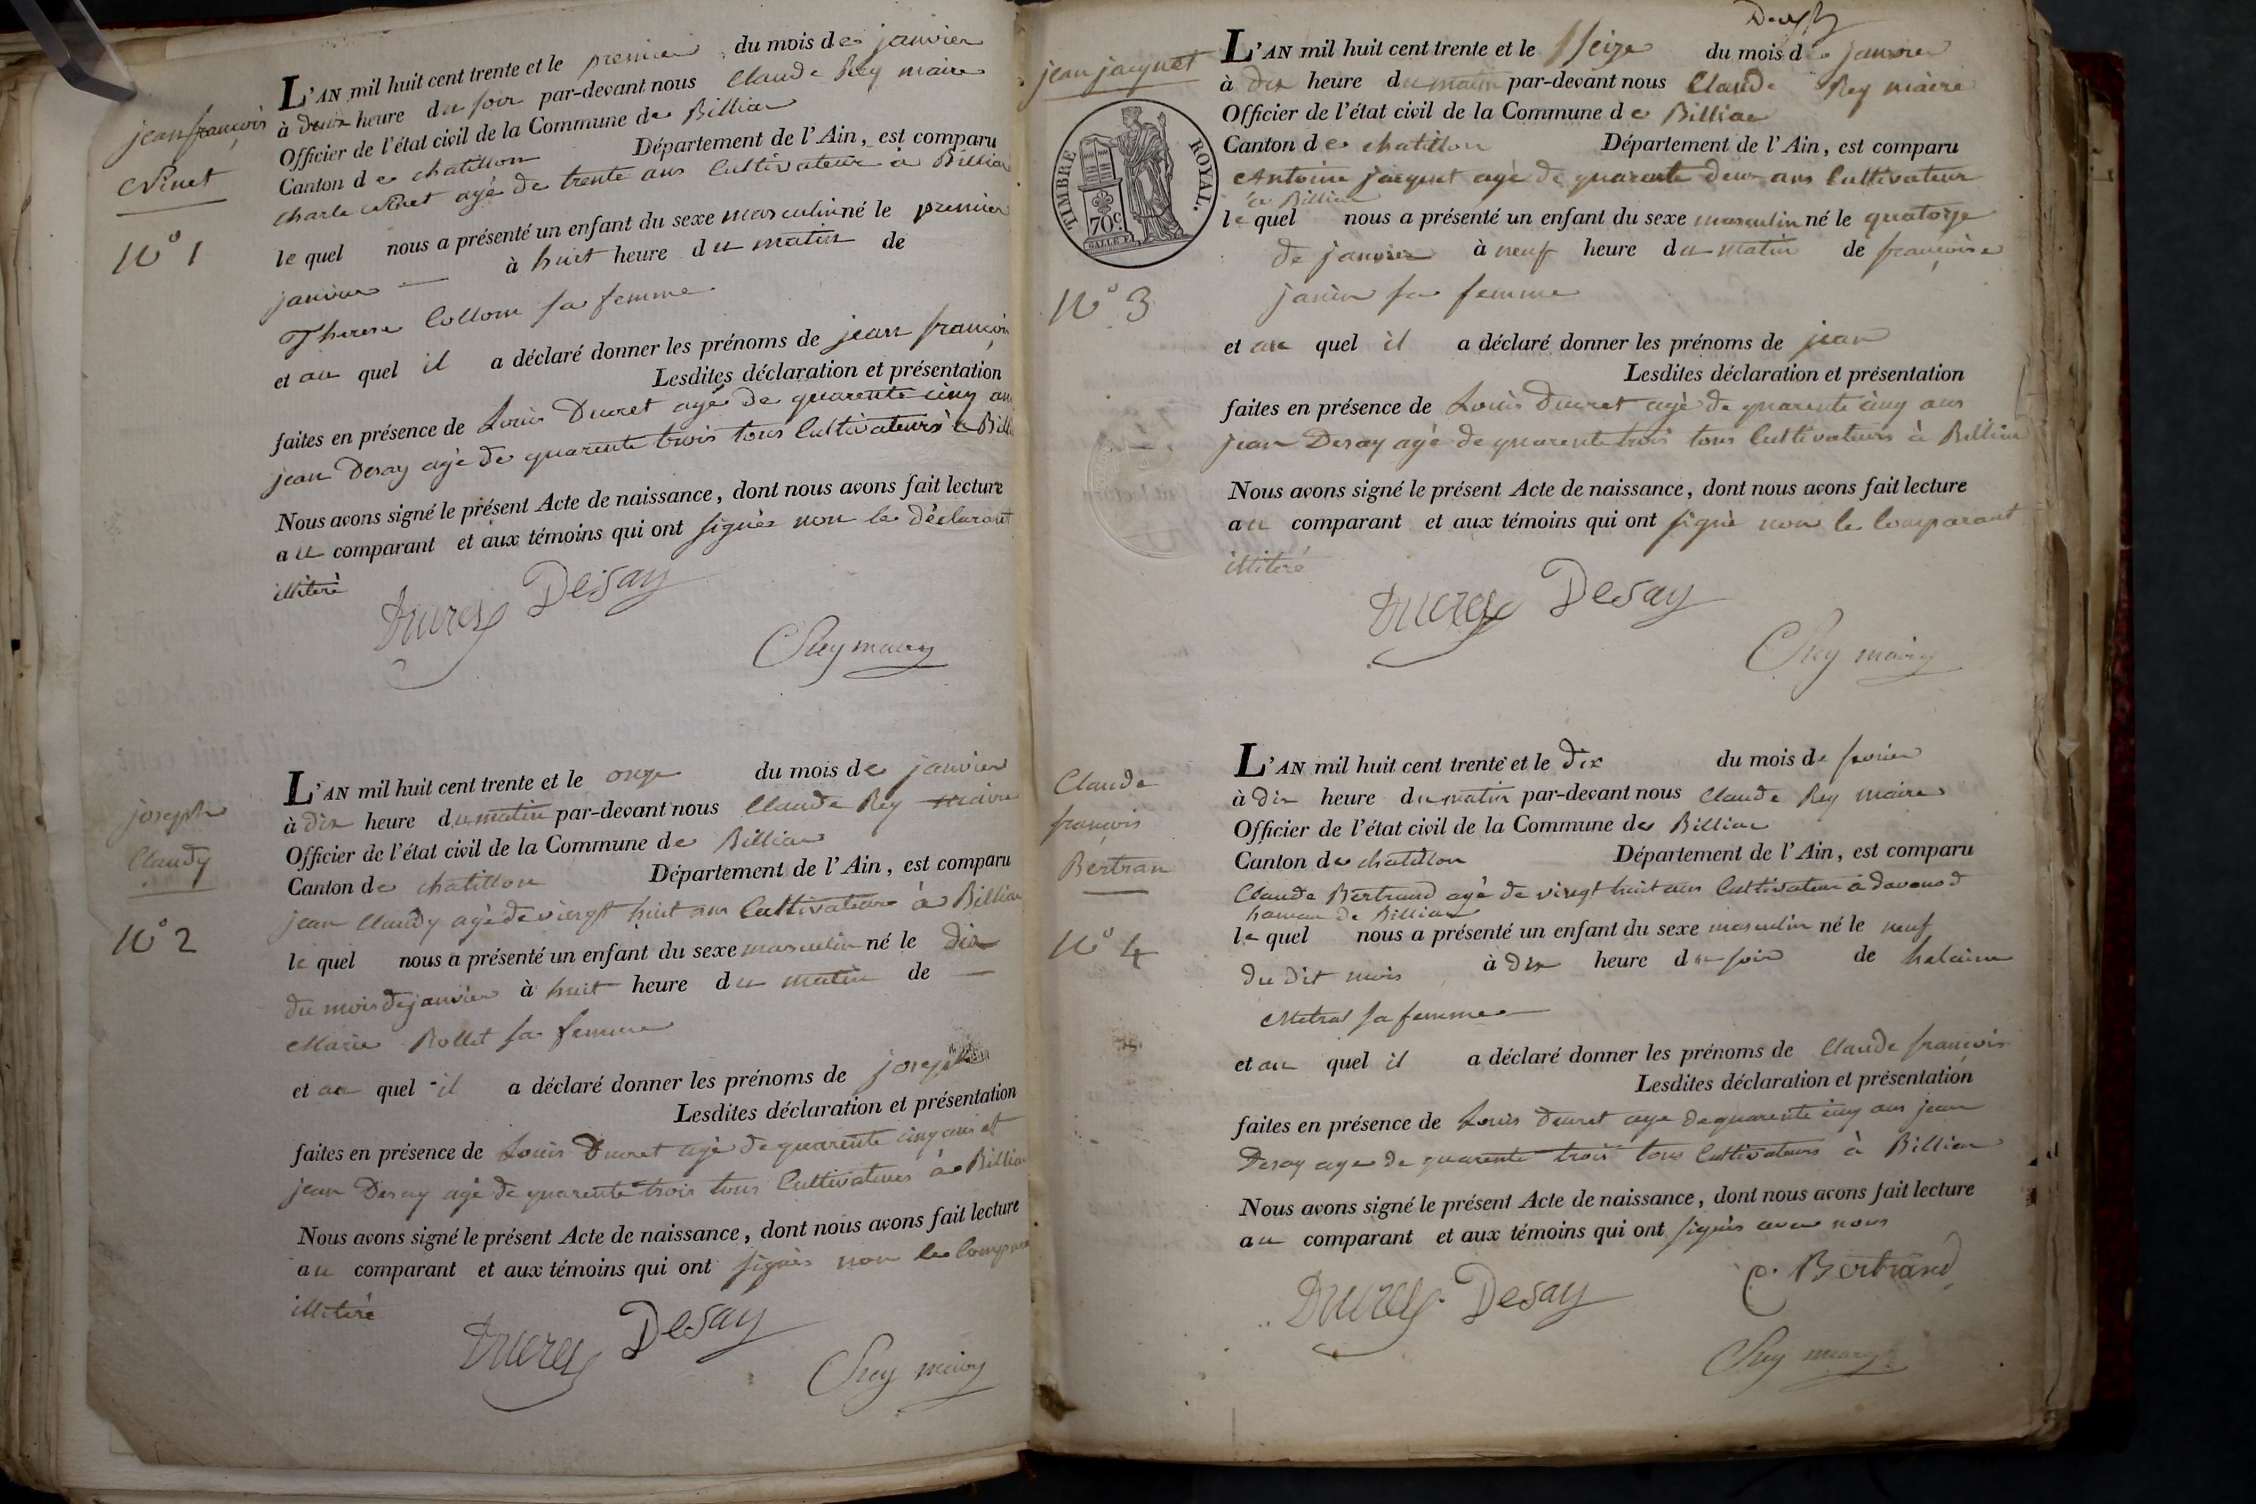 jean françois
Ninet
N° 1
L'AN mil huit cent trente et le premier du mois de janvier
à deux heure du soir par-devant nous Claude Rey maire
Officier de l'état civil de la Commune de Billiac
Canton de chatillon Département de l'Ain, est comparu
charle Ninet agé de trente ans Cultivateur à Billiac
le quel nous a présenté un enfant du sexe masculin né le premier
janvier à huit heure du matin de
Therese Collom sa femme
et au quel il a déclaré donner les prénoms de jean françois
Lesdites déclaration et présentation
faites en présence de Louis Ducret agé de quarente cinq ans
jean Desay agé de quarente trois tous Cultivateurs à Billi
Nous avons signé le présent Acte de naissance, dont nous avons fait lecture
au comparant et aux témoins qui ont signés non le déclarant
illitéré
Ducret Desay
C Rey maire
joseph
Claudy
N° 2
L'AN mil huit cent trente et le onze du mois de janvier
à dix heure du matin par-devant nous Claude Rey maire
Officier de l'état civil de la Commune de Billiac
Canton de chatillon Département de l'Ain, est comparu
jean Claudy agé de viengt huit ans Cultivateur à Billiac
le quel nous a présenté un enfant du sexe masculin né le dix
du mois de janvier à huit heure du matin de
Marie Rollet sa femme
et au quel il a déclaré donner les prénoms de joseph
Lesdites déclaration et présentation
faites en présence de Louis Ducret agé de quarente cinq ans et
jean Desay agé de quarente trois tous Cultivateurs à Billiac
Nous avons signé le présent Acte de naissance, dont nous avons fait lecture
au comparant et aux témoins qui ont signés non le Compara
illitéré
Ducret Desay
C Rey maire
jean jacquet
TIMBRE ROYAL.
70c.
N° 3
L'AN mil huit cent trente et le seize du mois de janvier
à dix heure du matin par-devant nous Claude Rey maire
Officier de l'état civil de la Commune de Billiac
Canton de chatillon Département de l'Ain, est comparu
Antoine jacquet agé de quarente deux ans Cultivateur
à Billiac
le quel nous a présenté un enfant du sexe masculin né le quatorze
de janvier à neuf heure du matin de françoise
janin sa femme
et au quel il a déclaré donner les prénoms de jean
Lesdites déclaration et présentation
faites en présence de Louis Ducret agé de quarente cinq ans
jean Desay agé de quarente trois tous Cultivateurs à Billiac
Nous avons signé le présent Acte de naissance, dont nous avons fait lecture
au comparant et aux témoins qui ont signé non le Comparant
illitéré
Ducret Desay
C Rey maire
Claude
françois
Bertran
N° 4
L'AN mil huit cent trente et le dix du mois de fevrier
à dix heure du matin par-devant nous Claude Rey maire
Officier de l'état civil de la Commune de Billiac
Canton de chatillon Département de l'Ain, est comparu
Claude Bertrand agé de viengt huit ans Cultivateur à davanod
hameau de Billiac
le quel nous a présenté un enfant du sexe masculin né le neuf
du dit mois à dix heure du soir de halaine
Metral sa femme
et au quel il a déclaré donner les prénoms de Claude françois
Lesdites déclaration et présentation
faites en présence de Louis Ducret agé de quarente cinq ans jean
Desay agé de quarente trois tous Cultivateurs à Billiac
Nous avons signé le présent Acte de naissance, dont nous avons fait lecture
au comparant et aux témoins qui ont signés avec nous
C. Bertrand
Ducret Desay
C Rey maire